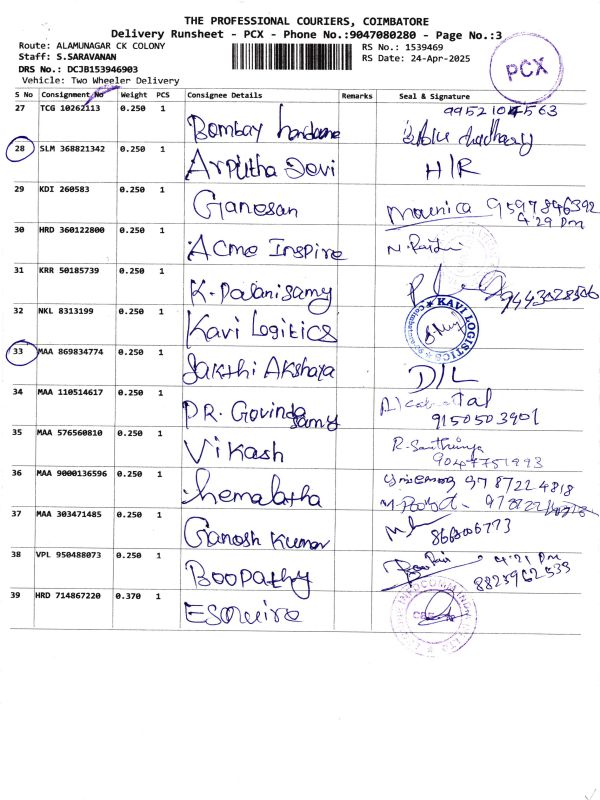 THE PROFESSIONAL COURIERS, COIMBATORE
Delivery Runsheet - PCX - Phone No.:9047080280 - Page No.:3
Route: ALAMUNAGAR CK COLONY
RS No.: 1539469
Staff: S.SARAVANAN
RS Date: 24-Apr-2025
DRS No.: DCJB153946903
Vehicle: Two Wheeler Delivery
PCX
S No Consignment No Weight PCS Consignee Details Remarks Seal & Signature
27 TCG 10262113 0.250 1 Bombay
28 SLM 368821342 0.250 1 Arputha Devi H/R
29 KDI 260583 0.250 1 Ganesan Mounica 9597846392
4.29 pm
30 HRD 360122800 0.250 1 Acme Inspire
31 KRR 50185739 0.250 1 K. Palanisamy
32 NKL 8313199 0.250 1 Kavi Logitics KAVI LOGISTICS
33 MAA 869834774 0.250 1 Sakthi Akshaya D/L
34 MAA 110514617 0.250 1 DR. Govinda samy
9150503901
35 MAA 576560810 0.250 1 Vikash
9047751993
36 MAA 9000136596 0.250 1 hemalatha 9787224818
37 MAA 303471485 0.250 1 Ganesh Kumar
38 VPL 950488073 0.250 1 Boopathy 4.21 pm
39 HRD 714867220 0.370 1 Esquire